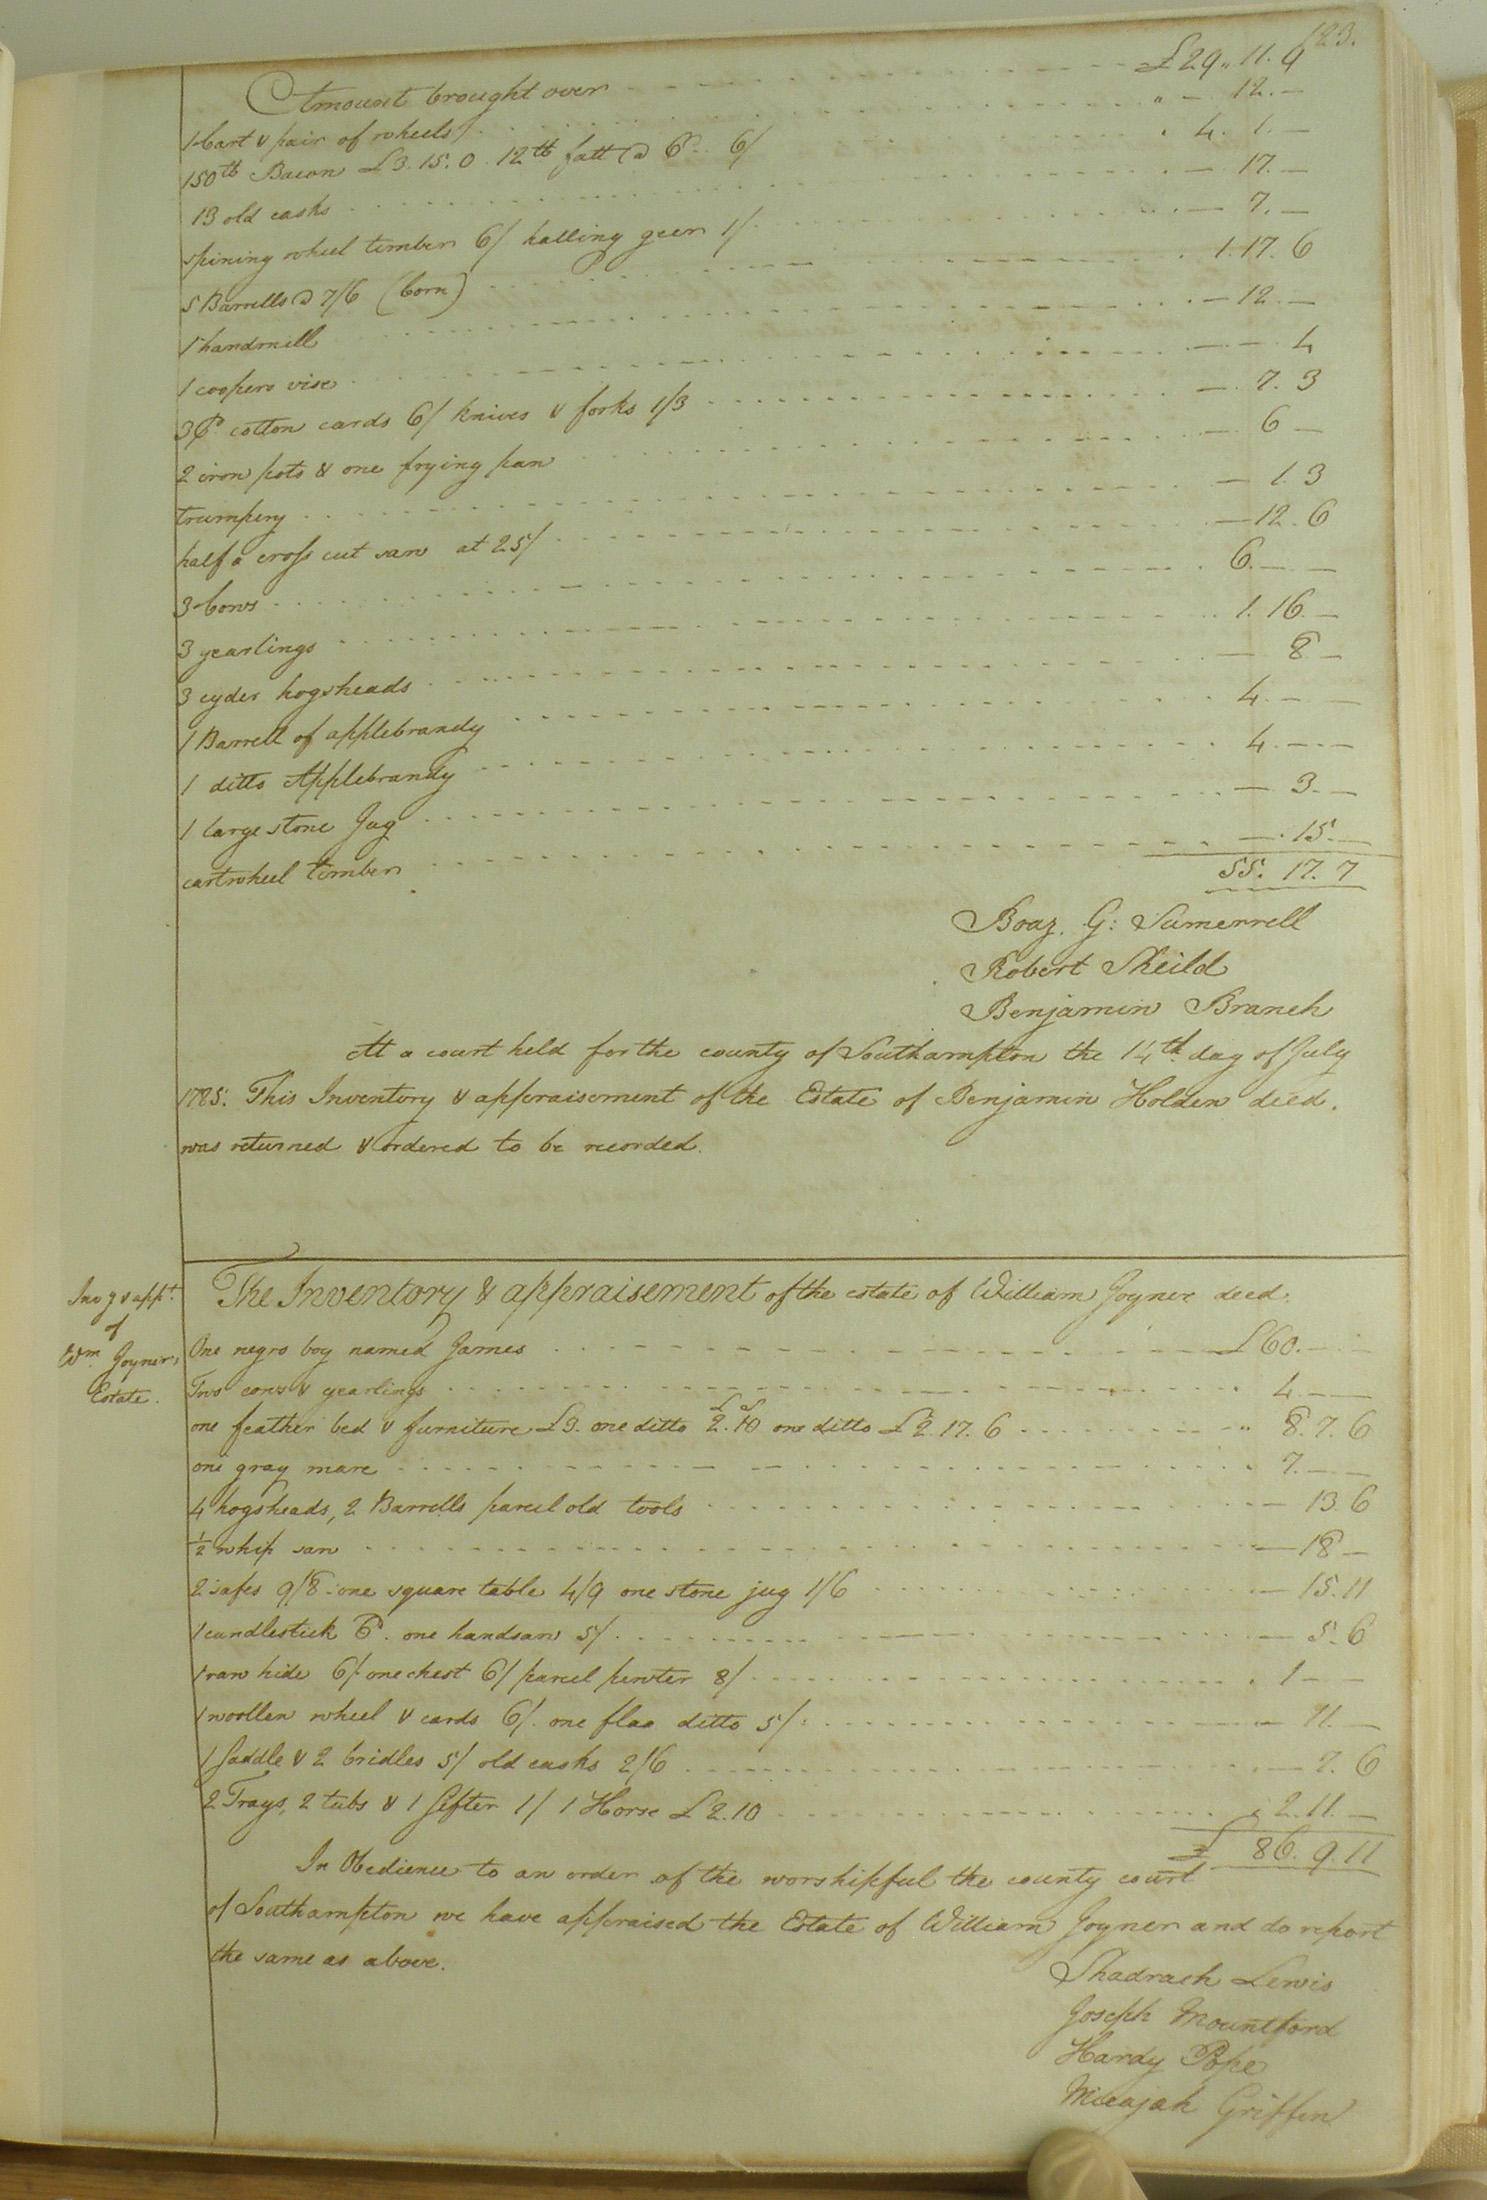 123.
Amount brought over £29.. 11. 9
1 Cart & pair of wheels " — 12. —
150lb Bacon £3. 15. 0. 12lb fatt @ 6d.. 6/ . 4. 1. —
13 old casks — 17. —
spining wheel timber 6/ halling geer 1/ — 7. —
5 Barrells @ 7/6 (Corn) 1. 17. 6
1 handmill — 12. —
1 coopers vise — — 4
3 pr. cotton cards 6/ knives & forks 1/3 — 7. 3
2 iron pots & one frying pan — 6 —
trumpery — 1. 3
half a cross cut saw at 25/ — 12. 6
3 Cows 6. — —
3 yearlings 1. 16. —
3 cyder hogsheads — 8 —
1 Barrell of applebrandy 4. — —
1 ditto Applebrandy 4. — —
1 large stone Jug — 3. —
cartwheel timber — 15. —
55. 17. 7
Boaz. G: Sumerrell
Robert Sheild
Benjamin Branch
At a court held for the county of Southampton the 14th. day of July
1785. This Inventory & appraisement of the Estate of Benjamin Holden decd.
was returned & ordered to be recorded.
Invy & appt.
of
Wm. Joyners
Estate.
The Inventory & appraisement of the estate of William Joyner decd.
One negro boy named James £60. — —
Two cows & yearlings 4. — —
one feather bed & furniture £3. one ditto £2. s10 one ditto £2. 17. 6 " 8. 7. 6
one gray mare 7. — —
4 hogsheads, 2 Barrells parcel old tools — 13. 6
½ whip saw — 18 —
2 safes 9/8 - one square table 4/9 one stone jug 1/6 — 15. 11
1 candlestick 6d. one handsaw 5/. — 5. 6
1 raw hide 6/. one chest 6/ parcel pewter 8/ . 1 — —
1 woollen wheel & cards 6/. one flax ditto 5/: — 11. —
1 Saddle & 2 bridles 5/ old casks 2/6 — 7. 6
2 Trays, 2 tubs & 1 Sifter 1/ 1 Horse £2. 10 . 2. 11. —
£ 86. 9. 11
In Obedience to an order of the worshipful the county court
of Southampton we have appraised the Estate of William Joyner and do report
the same as above.
Shadrach Lewis
Joseph Mountford
Hardy Pope
Micajah Griffin